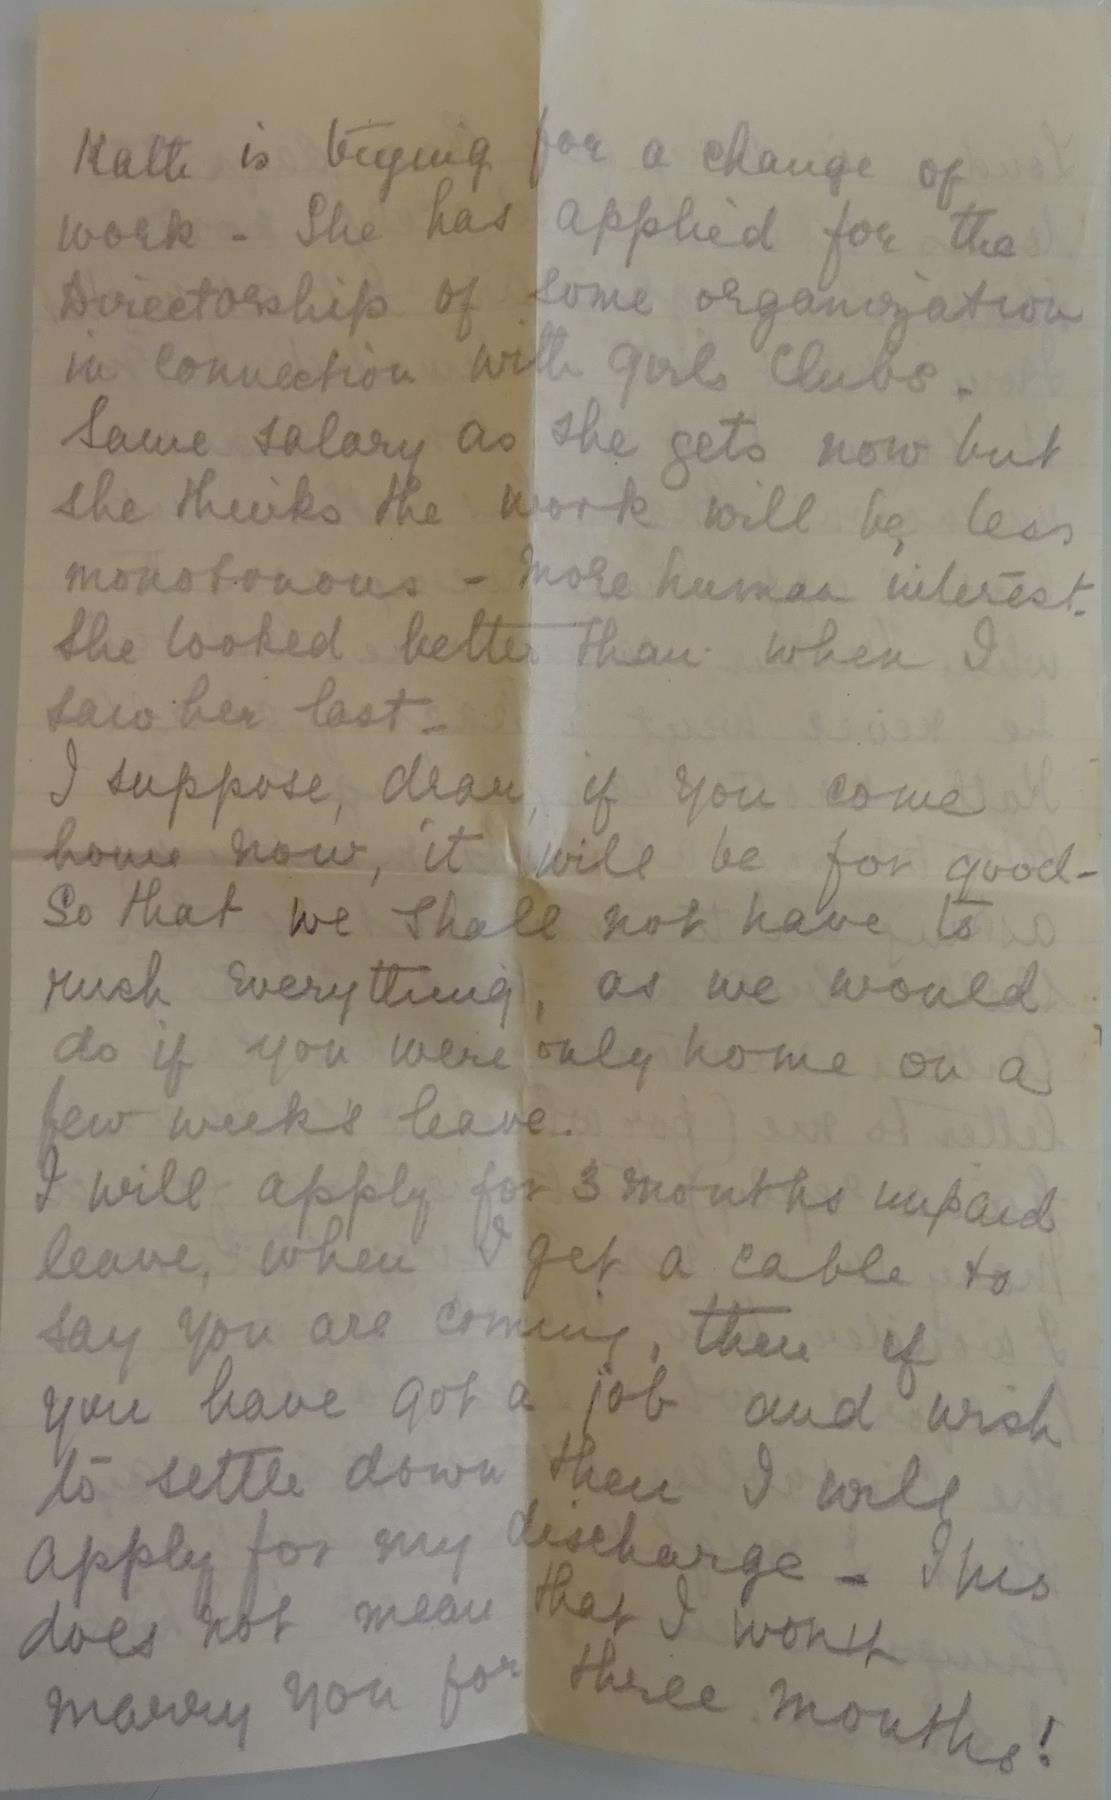 Kath is trying for a change of
work - She has applied for the
Directorship of some organization
in connection with girls Clubs.
Same salary as she gets now but
she thinks the work will be less
monotonous - more human interest.
She looked better than when I
saw her last -
I suppose, dear, if you come
home now, it will be for good -
So that we shall not have to
rush everything, as we would
do if you were only home on a
few week's leave.
I will apply for 3 months unpaid
leave, when I get a cable to
say you are coming, then if
you have got a job and wish
to settle down then I will
apply for my discharge - This
does not mean that I wont
marry you for three months!